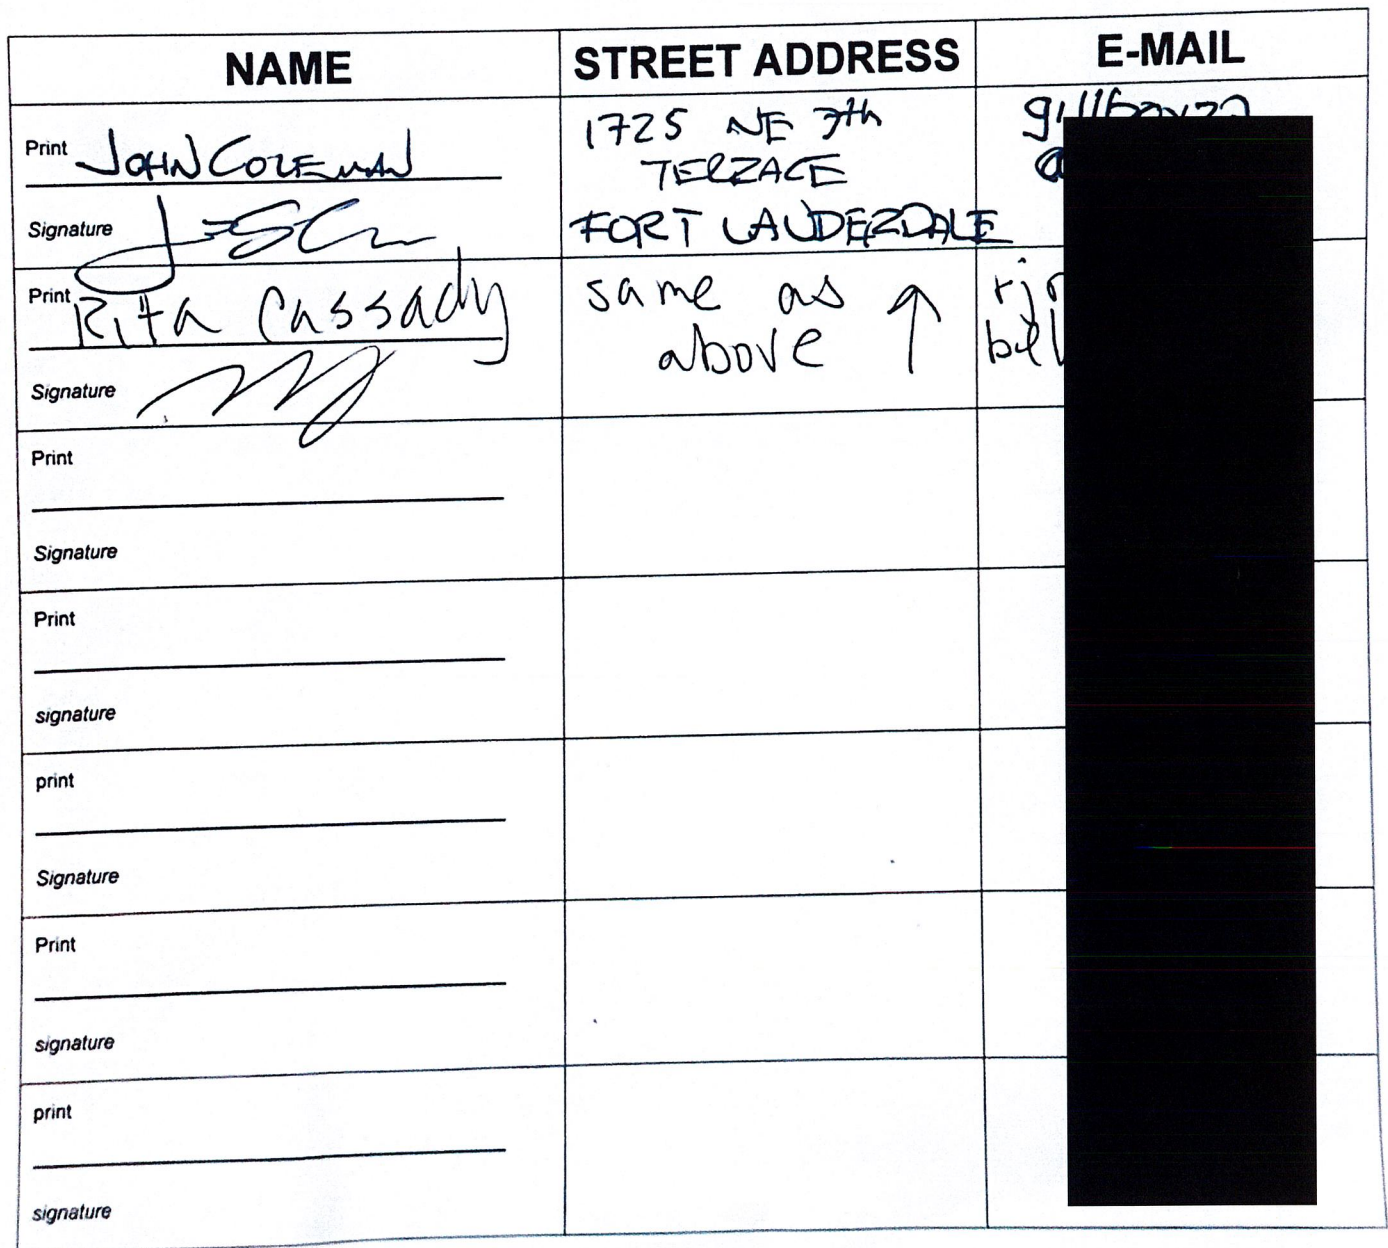 NAME STREET ADDRESS E-MAIL
Print JOHN COLEMAN
1725 NE 7th
TERRACE
FORT LAUDERDALE
@
Signature
Print Rita Cassady
same as ↑
above
Signature
Print
Signature
Print
signature
print
Signature
Print
signature
print
signature